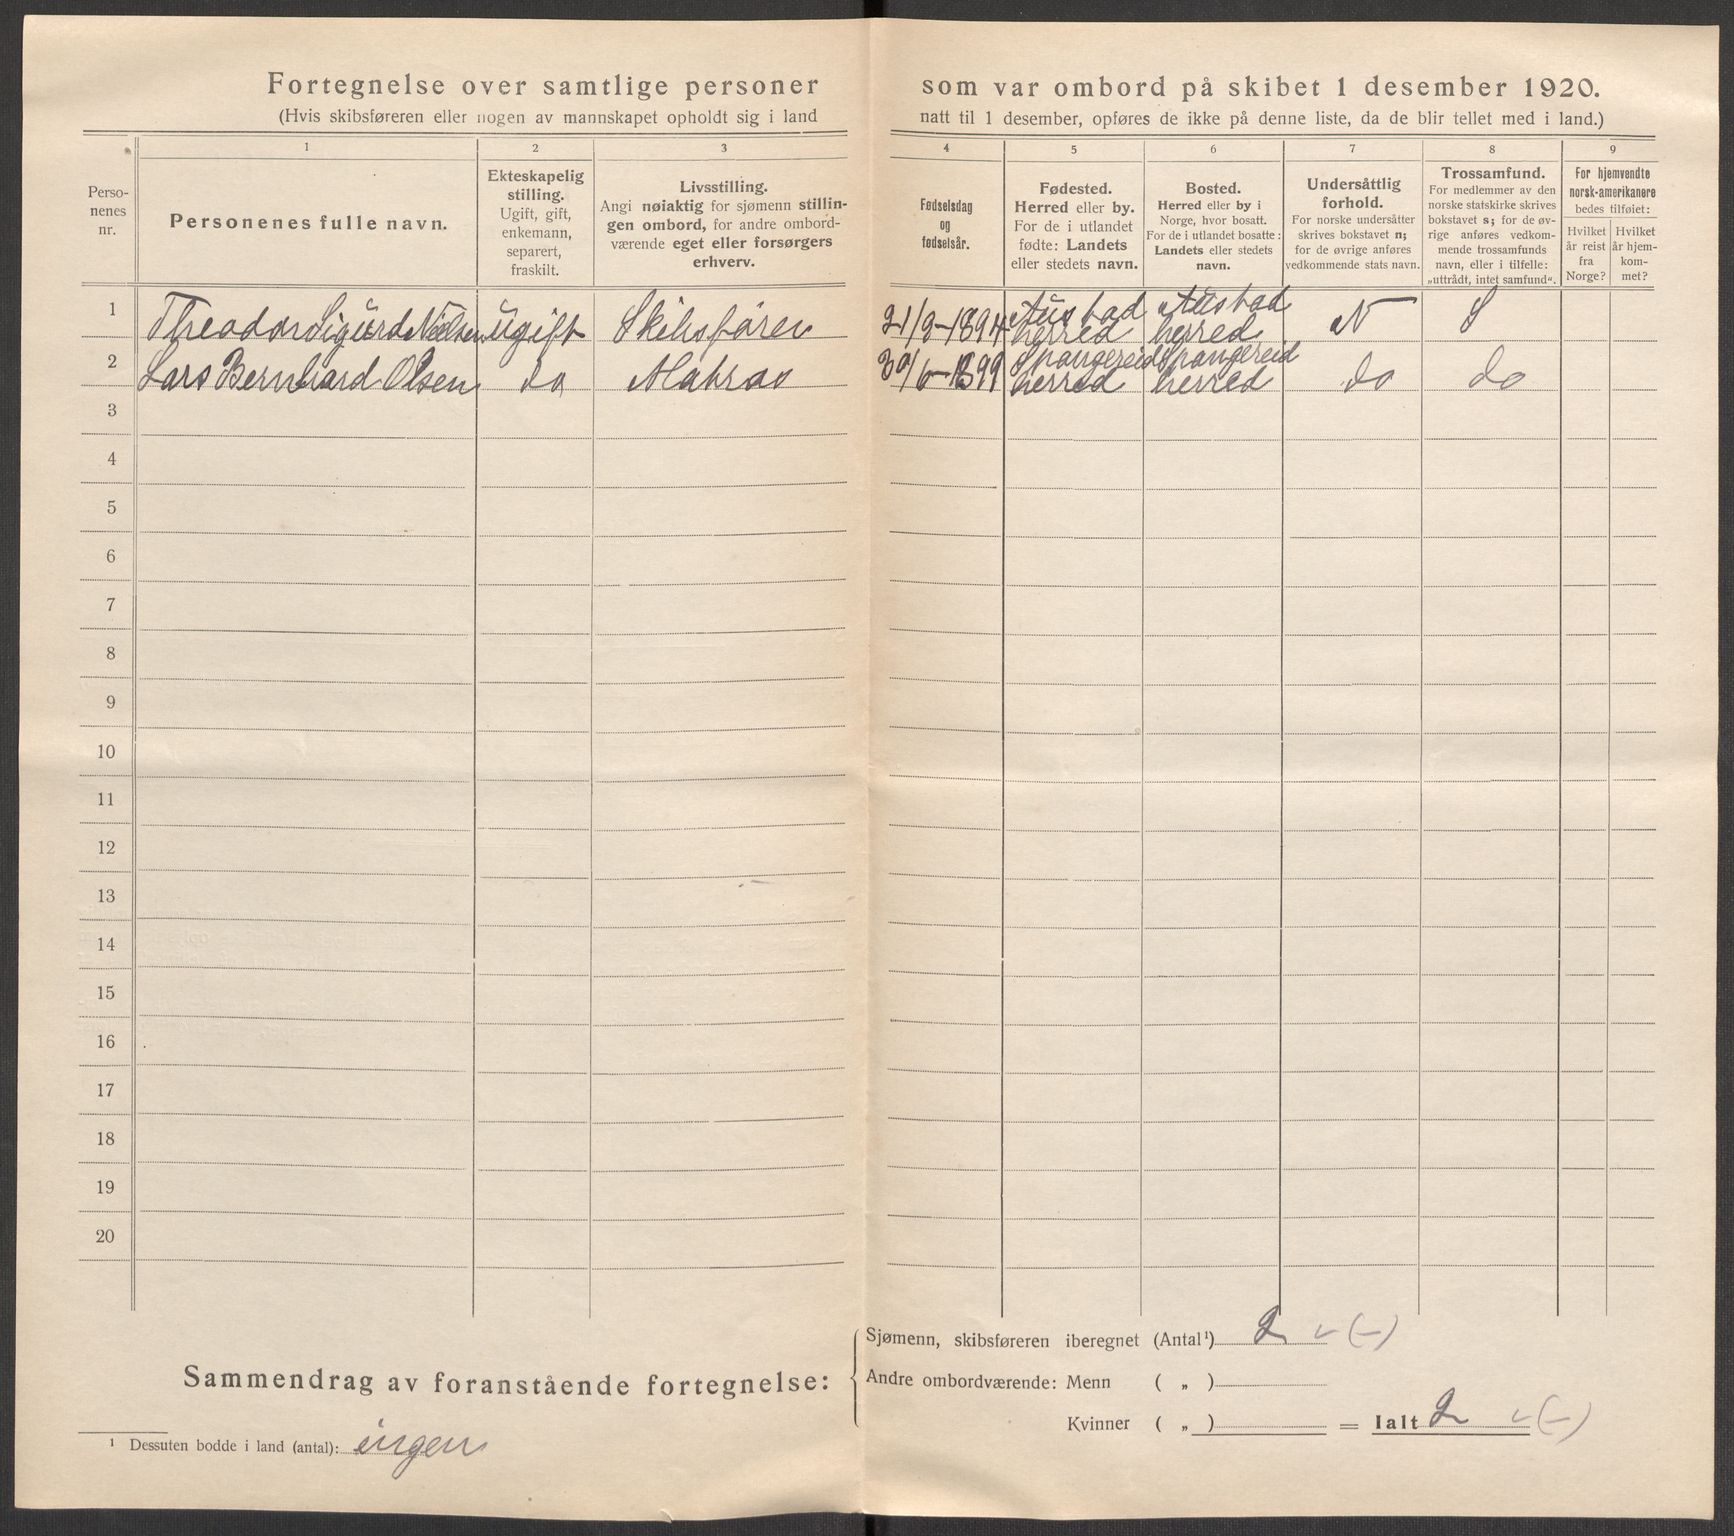 Fortegnelse over samtlige personer som var ombord på skibet 1 desember 1920.
(Hvis skibsføreren eller nogen av mannskapet opholdt sig i land natt til 1 desember, opføres de ikke på denne liste, da de blir tellet med i land.)
1 2 3 4 5 6 7 8 9
Perso-
nenes
nr.
Personenes fulle navn.
Ekteskapelig
stilling.
Ugift, gift,
enkemann,
separert,
fraskilt.
Livsstilling.
Angi nøiaktig for sjømenn stillin-
gen ombord, for andre ombord-
værende eget eller forsørgers
erhverv.
Fødselsdag
og
fødselsår.
Fødested.
Herred eller by.
For de i utlandet
fødte: Landets
eller stedets navn.
Bosted.
Herred eller by i
Norge, hvor bosatt.
For de i utlandet bosatte:
Landets eller stedets
navn.
Undersåttlig
forhold.
For norske undersåtter
skrives bokstavet n;
for de øvrige anføres
vedkommende stats navn.
Trossamfund.
For medlemmer av den
norske statskirke skrives
bokstavet s; for de øv-
rige anføres vedkom-
mende trossamfunds
navn, eller i tilfelle:
„uttrådt, intet samfund“.
For hjemvendte
norsk-amerikanere
bedes tilføiet:
Hvilket
år reist
fra
Norge?
Hvilket
år hjem-
kom-
met?
1 Theodor Sigurd Nielsen ugift Skibsfører 21/8-1894 Austad herred Austad herred N S
2 Lars Bernhard Olsen do Matros 30/6-1899 Spangereid herred Spangereid herred do do
3
4
5
6
7
8
9
10
11
12
13
14
15
16
17
18
19
20
Sammendrag av foranstående fortegnelse:
Sjømenn, skibsføreren iberegnet (Antal¹) 2 v (-)
Andre ombordværende: Menn ( „ )
Kvinner ( „ ) = Ialt 2 v (-)
¹ Dessuten bodde i land (antal): ingen